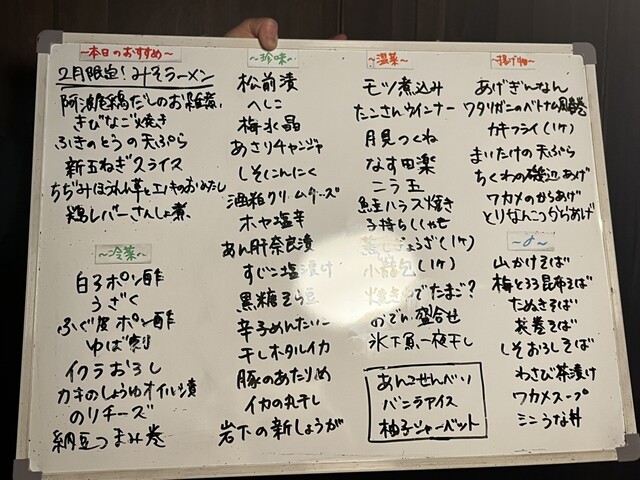 ~本日のおすすめ~
2月限定!みそラーメン
阿波尾鶏だしのお雑煮
きびなご焼き
ふきのとうの天ぷら
新玉ねぎスライス
ちぢみほうれん草とエノキのおひたし
鶏レバーさんしょ煮
~冷菜~
白子ポン酢
うざく
ふぐ皮ポン酢
ゆば刺
イクラおろし
カキのしょうゆオイル漬
のりチーズ
納豆つまみ巻
~珍味~
松前漬
へしこ
梅水晶
あさりチャンジャ
しそにんにく
酒粕クリームチーズ
ホヤ塩辛
あん肝奈良漬
すじこ塩漬け
黒糖そら豆
辛子めんたいこ
干しホタルイカ
豚のあたりめ
イカの丸干し
岩下の新しょうが
~温菜~
モツ煮込み
たこさんウインナー
月見つくね
なす田楽
ニラ玉
鮭ハラス焼き
子持ちししゃも
蒸しぎょうざ(1ケ)
小籠包(1ケ)
ゆでたまご?
おでん盛合せ
氷下魚一夜干し
あんこせんべい
バニラアイス
柚子シャーベット
~揚げ物~
あげぎんなん
ワタリガニのベトナム風春巻
カキフライ(1ケ)
まいたけの天ぷら
ちくわの磯辺あげ
ワカメのからあげ
とりなんこつからあげ
~〆~
山かけそば
梅とろろ昆布そば
たぬきそば
花巻そば
しそおろしそば
わさび茶漬け
ワカメスープ
ミニうな丼